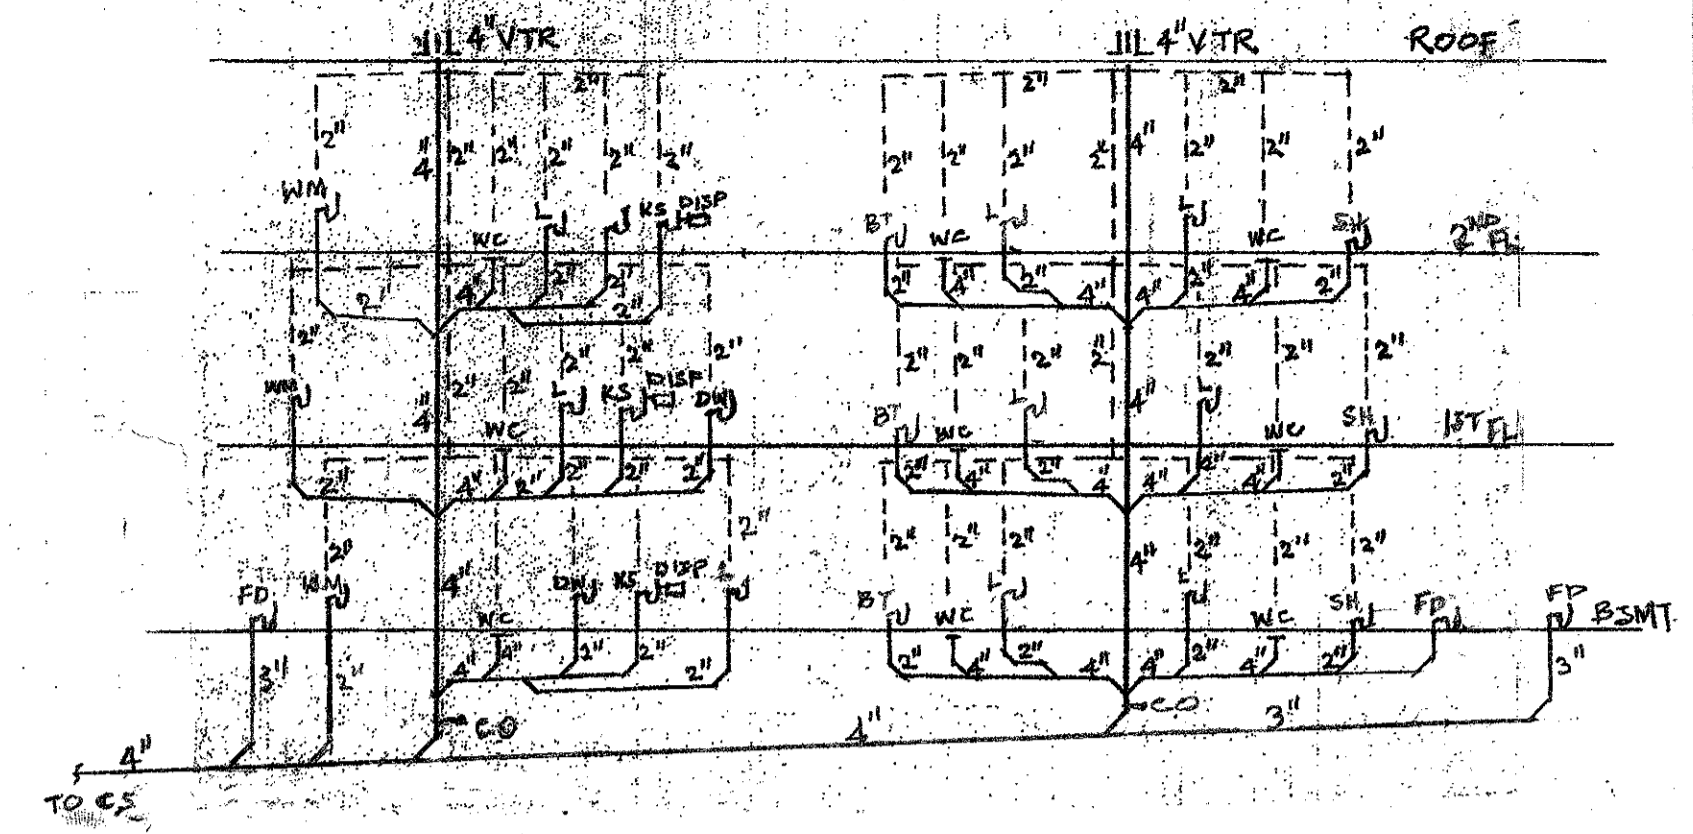 4" VTR 4" VTR ROOF
2" 2" 2"
2" 4" 2" 2" 2" 2" 2" 2" 2" 2" 2" 4" 2" 2" 2"
WM L KS DISP BT L L SH
WC WC WC 2ND FL
2" 4" 2" 2" 2" 2" 4" 2" 4" 4" 2" 4" 2"
2" 4" 2" 2" 2" 2" 2" 2" 2" 2" 2" 4" 2" 2" 2"
WM L KS DISP DW BT L L SH
WC WC WC 1ST FL
2" 4" 2" 2" 2" 2" 2" 4" 2" 4" 4" 2" 4" 2"
2" 4" 2" 2" 2" 2" 4" 2" 2" 2"
FD WM DW KS DISP L BT L L SH FD FD
WC WC WC BSMT
3" 2" 4" 4" 2" 2" 2" 2" 4" 2" 4" 4" 2" 4" 2" 3"
CO CO
4" 4" 3"
TO CS